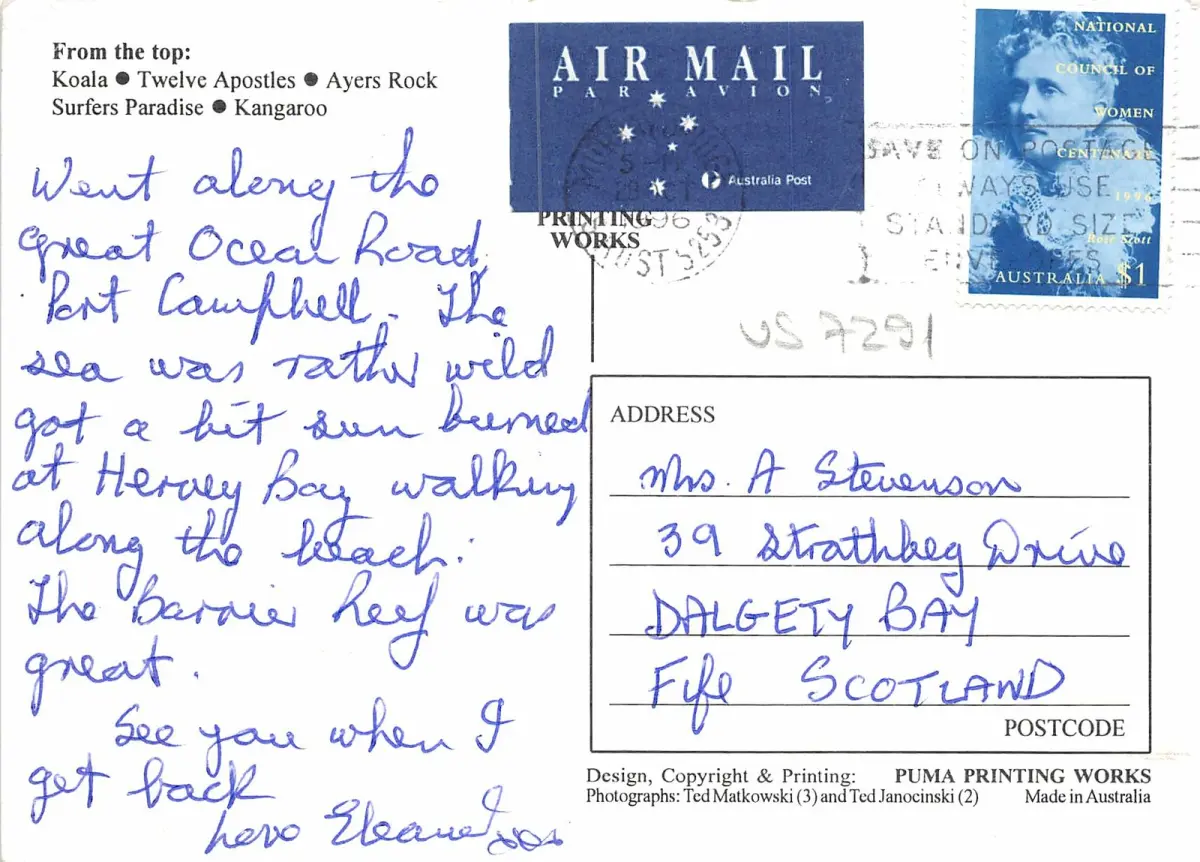 From the top:
Koala ● Twelve Apostles ● Ayers Rock
Surfers Paradise ● Kangaroo
Went along the
great Ocean Road,
Port Campbell. The
sea was rather wild
got a bit sun burned
at Hervey Bay walking
along the beach.
The Barrier Reef was
great.
See you when I
get back
Love Eleanor
AIR MAIL
PAR AVION
Australia Post
PRINTING
WORKS
1996
5253
NATIONAL
COUNCIL OF
WOMEN
CENTENARY
1996
Rose Scott
AUSTRALIA $1
SAVE ON POSTAGE
ALWAYS USE
STANDARD SIZE
ENVELOPES
US 7291
ADDRESS
Mrs. A Stevenson
39 Strathbeg Drive
DALGETY BAY
Fife SCOTLAND
POSTCODE
Design, Copyright & Printing: PUMA PRINTING WORKS
Photographs: Ted Matkowski (3) and Ted Janocinski (2) Made in Australia